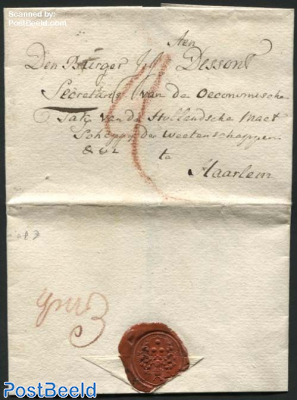 Scanned by
PostBeeld
ten
Den Burger Dessont
Secretaris van de Oeconomische
Tak van de Hollandsche Maat
Schappy der Weetenschappen
te
Haarlem
PostBeeld